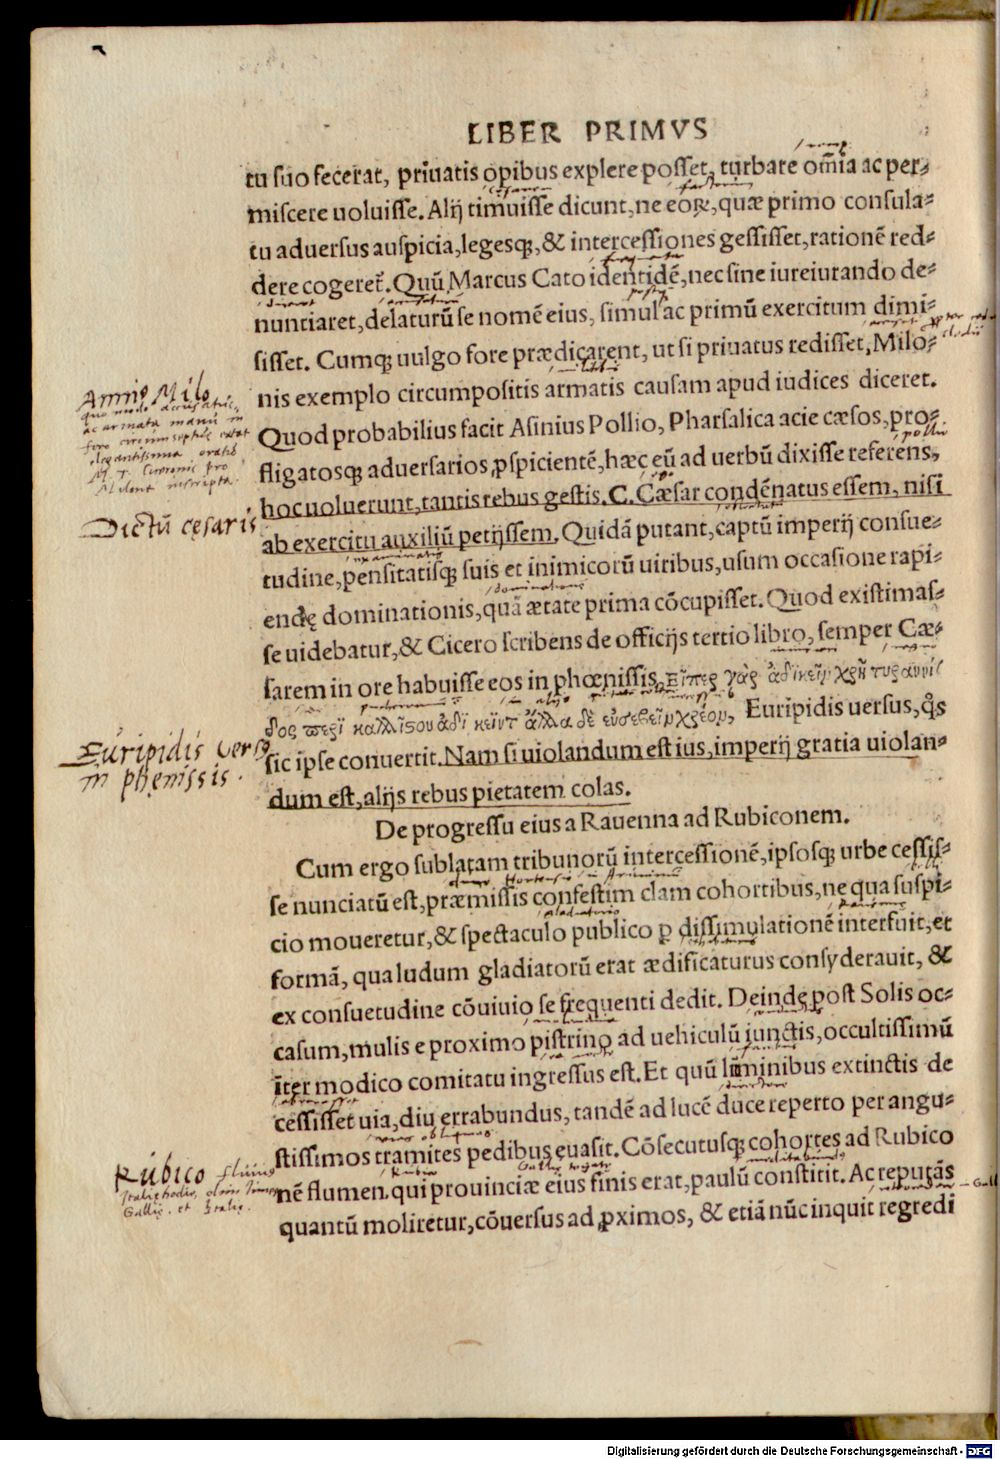 LIBER PRIMVS
tu suo fecerat, priuatis opibus explere posset, turbare om̄ia ac per-
miscere uoluisse. Alij timuisse dicunt, ne eoꝝ, quæ primo consula-
tu aduersus auspicia, legesqꝫ, & intercessiones gessisset, rationē red-
dere cogeret̄. Quū Marcus Cato identidē, nec sine iureiurando de-
nuntiaret, delaturū se nomē eius, simul ac primū exercitum dimi-
sisset. Cumqꝫ uulgo fore prædicarent, ut si priuatus redisset, Milo-
nis exemplo circumpositis armatis causam apud iudices diceret.
Annio Milo
Quod probabilius facit Asinius Pollio, Pharsalica acie cæsos, pro-
fligatosqꝫ aduersarios, ꝓspicientē, hæc eū ad uerbū dixisse referens,
hoc uoluerunt, tantis rebus gestis. C. Cæsar condēnatus essem, nisi
Dictū cęsaris
ab exercitu auxiliū petijssem. Quidā putant, captū imperij consue-
tudine, pensitatisqꝫ suis et inimicorū uiribus, usum occasione rapi-
endę dominationis, quā ætate prima cōcupisset. Quod existimas-
se uidebatur, & Cicero scribens de officijs tertio libro, semper Cæ-
sarem in ore habuisse eos in phœnissis, Εἴπερ γὰρ ἀδικεῖν χρὴ τυραννί
δος περὶ κάλλιστον ἀδικεῖν τ' ἄλλα δὲ εὐσεβεῖν χρέον, Euripidis uersus, qͦs
Euripidis verso
in phęnissis.
sic ipse conuertit. Nam si uiolandum est ius, imperij gratia uiolan-
dum est, alijs rebus pietatem colas.
De progressu eius a Rauenna ad Rubiconem.
Cum ergo sublatam tribunorū intercessionē, ipsosqꝫ urbe cessis-
se nunciatū est, præmissis confestim clam cohortibus, ne qua suspi-
cio moueretur, & spectaculo publico ꝑ dissimulationē interfuit, et
formā, qua ludum gladiatorū erat ædificaturus consyderauit, &
ex consuetudine cōuiuio se frequenti dedit. Deinde post Solis oc-
casum, mulis e proximo pistrino ad uehiculū iunctis, occultissimū
iter modico comitatu ingressus est. Et quū luminibus extinctis de
cessisset uia, diu errabundus, tandē ad lucē duce reperto per angu-
stissimos tramites pedibus euasit. Cōsecutusqꝫ cohortes ad Rubico
Rubico fluuius
nē flumen. qui prouinciæ eius finis erat, paulū constitit. Ac reputās
quantū moliretur, cōuersus ad ꝓximos, & etiā nūc inquit regredi
Digitalisierung gefördert durch die Deutsche Forschungsgemeinschaft - DFG